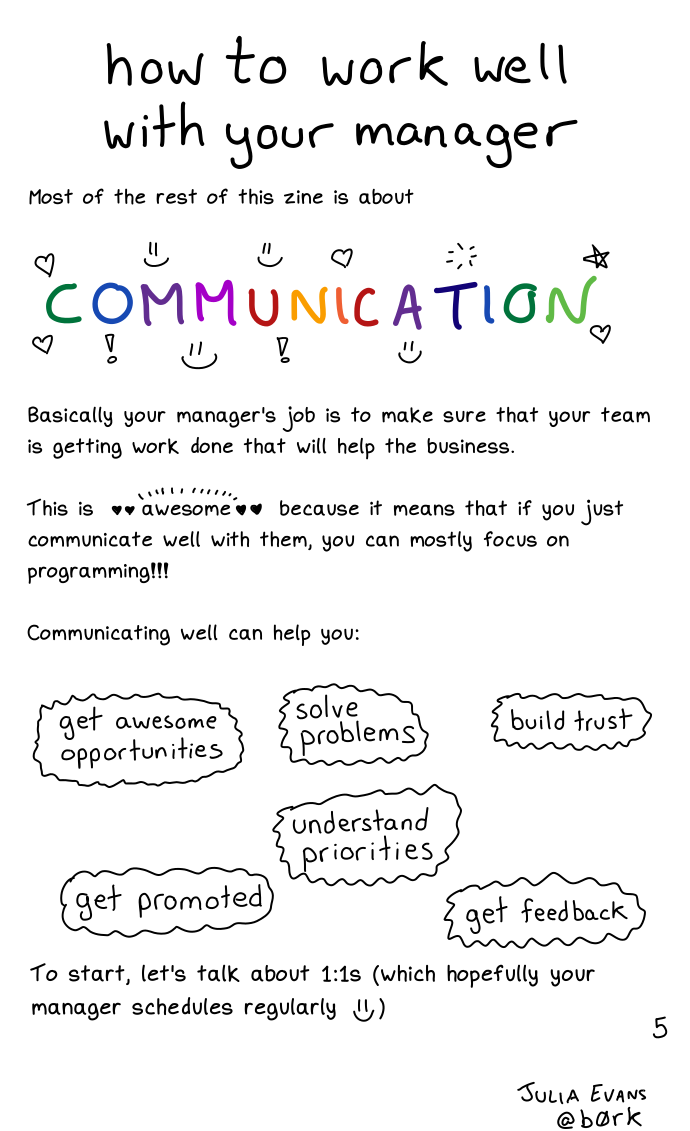 how to work well
with your manager
Most of the rest of this zine is about
COMMUNICATION
Basically your manager's job is to make sure that your team
is getting work done that will help the business.
This is ♥♥ awesome ♥♥ because it means that if you just
communicate well with them, you can mostly focus on
programming!!!
Communicating well can help you:
get awesome
opportunities
solve
problems
build trust
understand
priorities
get promoted
get feedback
To start, let's talk about 1:1s (which hopefully your
manager schedules regularly )
5
JULIA EVANS
@bØrk